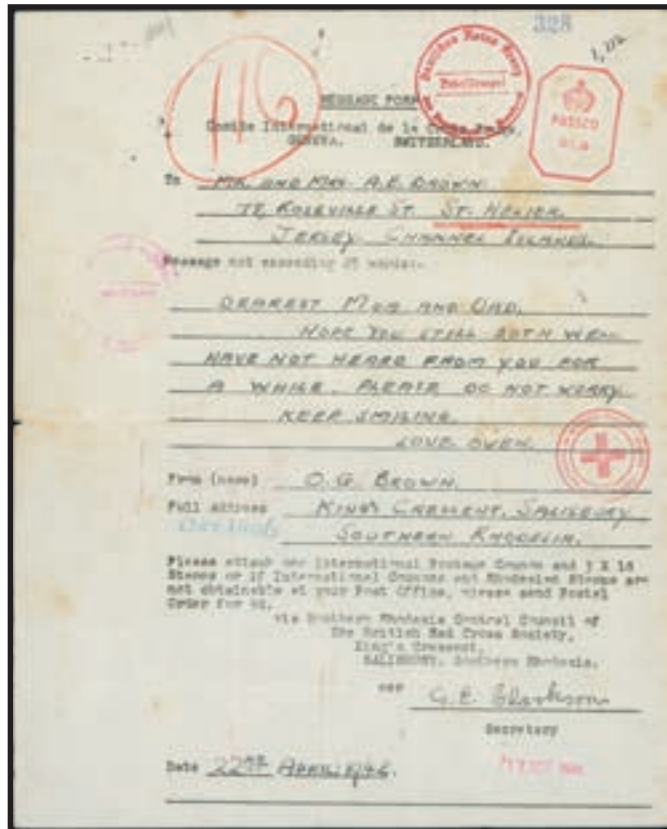 328
116
MESSAGE FORM
Comite International de la Croix Rouge,
GENEVA. SWITZERLAND.
PASSED
To MR. AND MRS. A.E. BROWN.
ROSEVILLE ST. ST. HELIER.
JERSEY. CHANNEL ISLANDS.
Message not exceeding 25 words:-
DEAREST MUM AND DAD,
HOPE YOU STILL BOTH WELL
HAVE NOT HEARD FROM YOU FOR
A WHILE. PLEASE DO NOT WORRY.
KEEP SMILING.
LOVE OWEN.
From (name) O.G. BROWN.
Full address KING'S CRESCENT, SALISBURY
SOUTHERN RHODESIA.
Please attach one International Postage Coupon and 3 X 1d
Stamps or if International Coupons and Rhodesian Stamps are
not obtainable at your Post Office, please send Postal
Order for
via Southern Rhodesia Central Council of
the British Red Cross Society,
King's Crescent,
SALISBURY. Southern Rhodesia.
per G. E. Clarkson
Secretary
Date 22nd APRIL